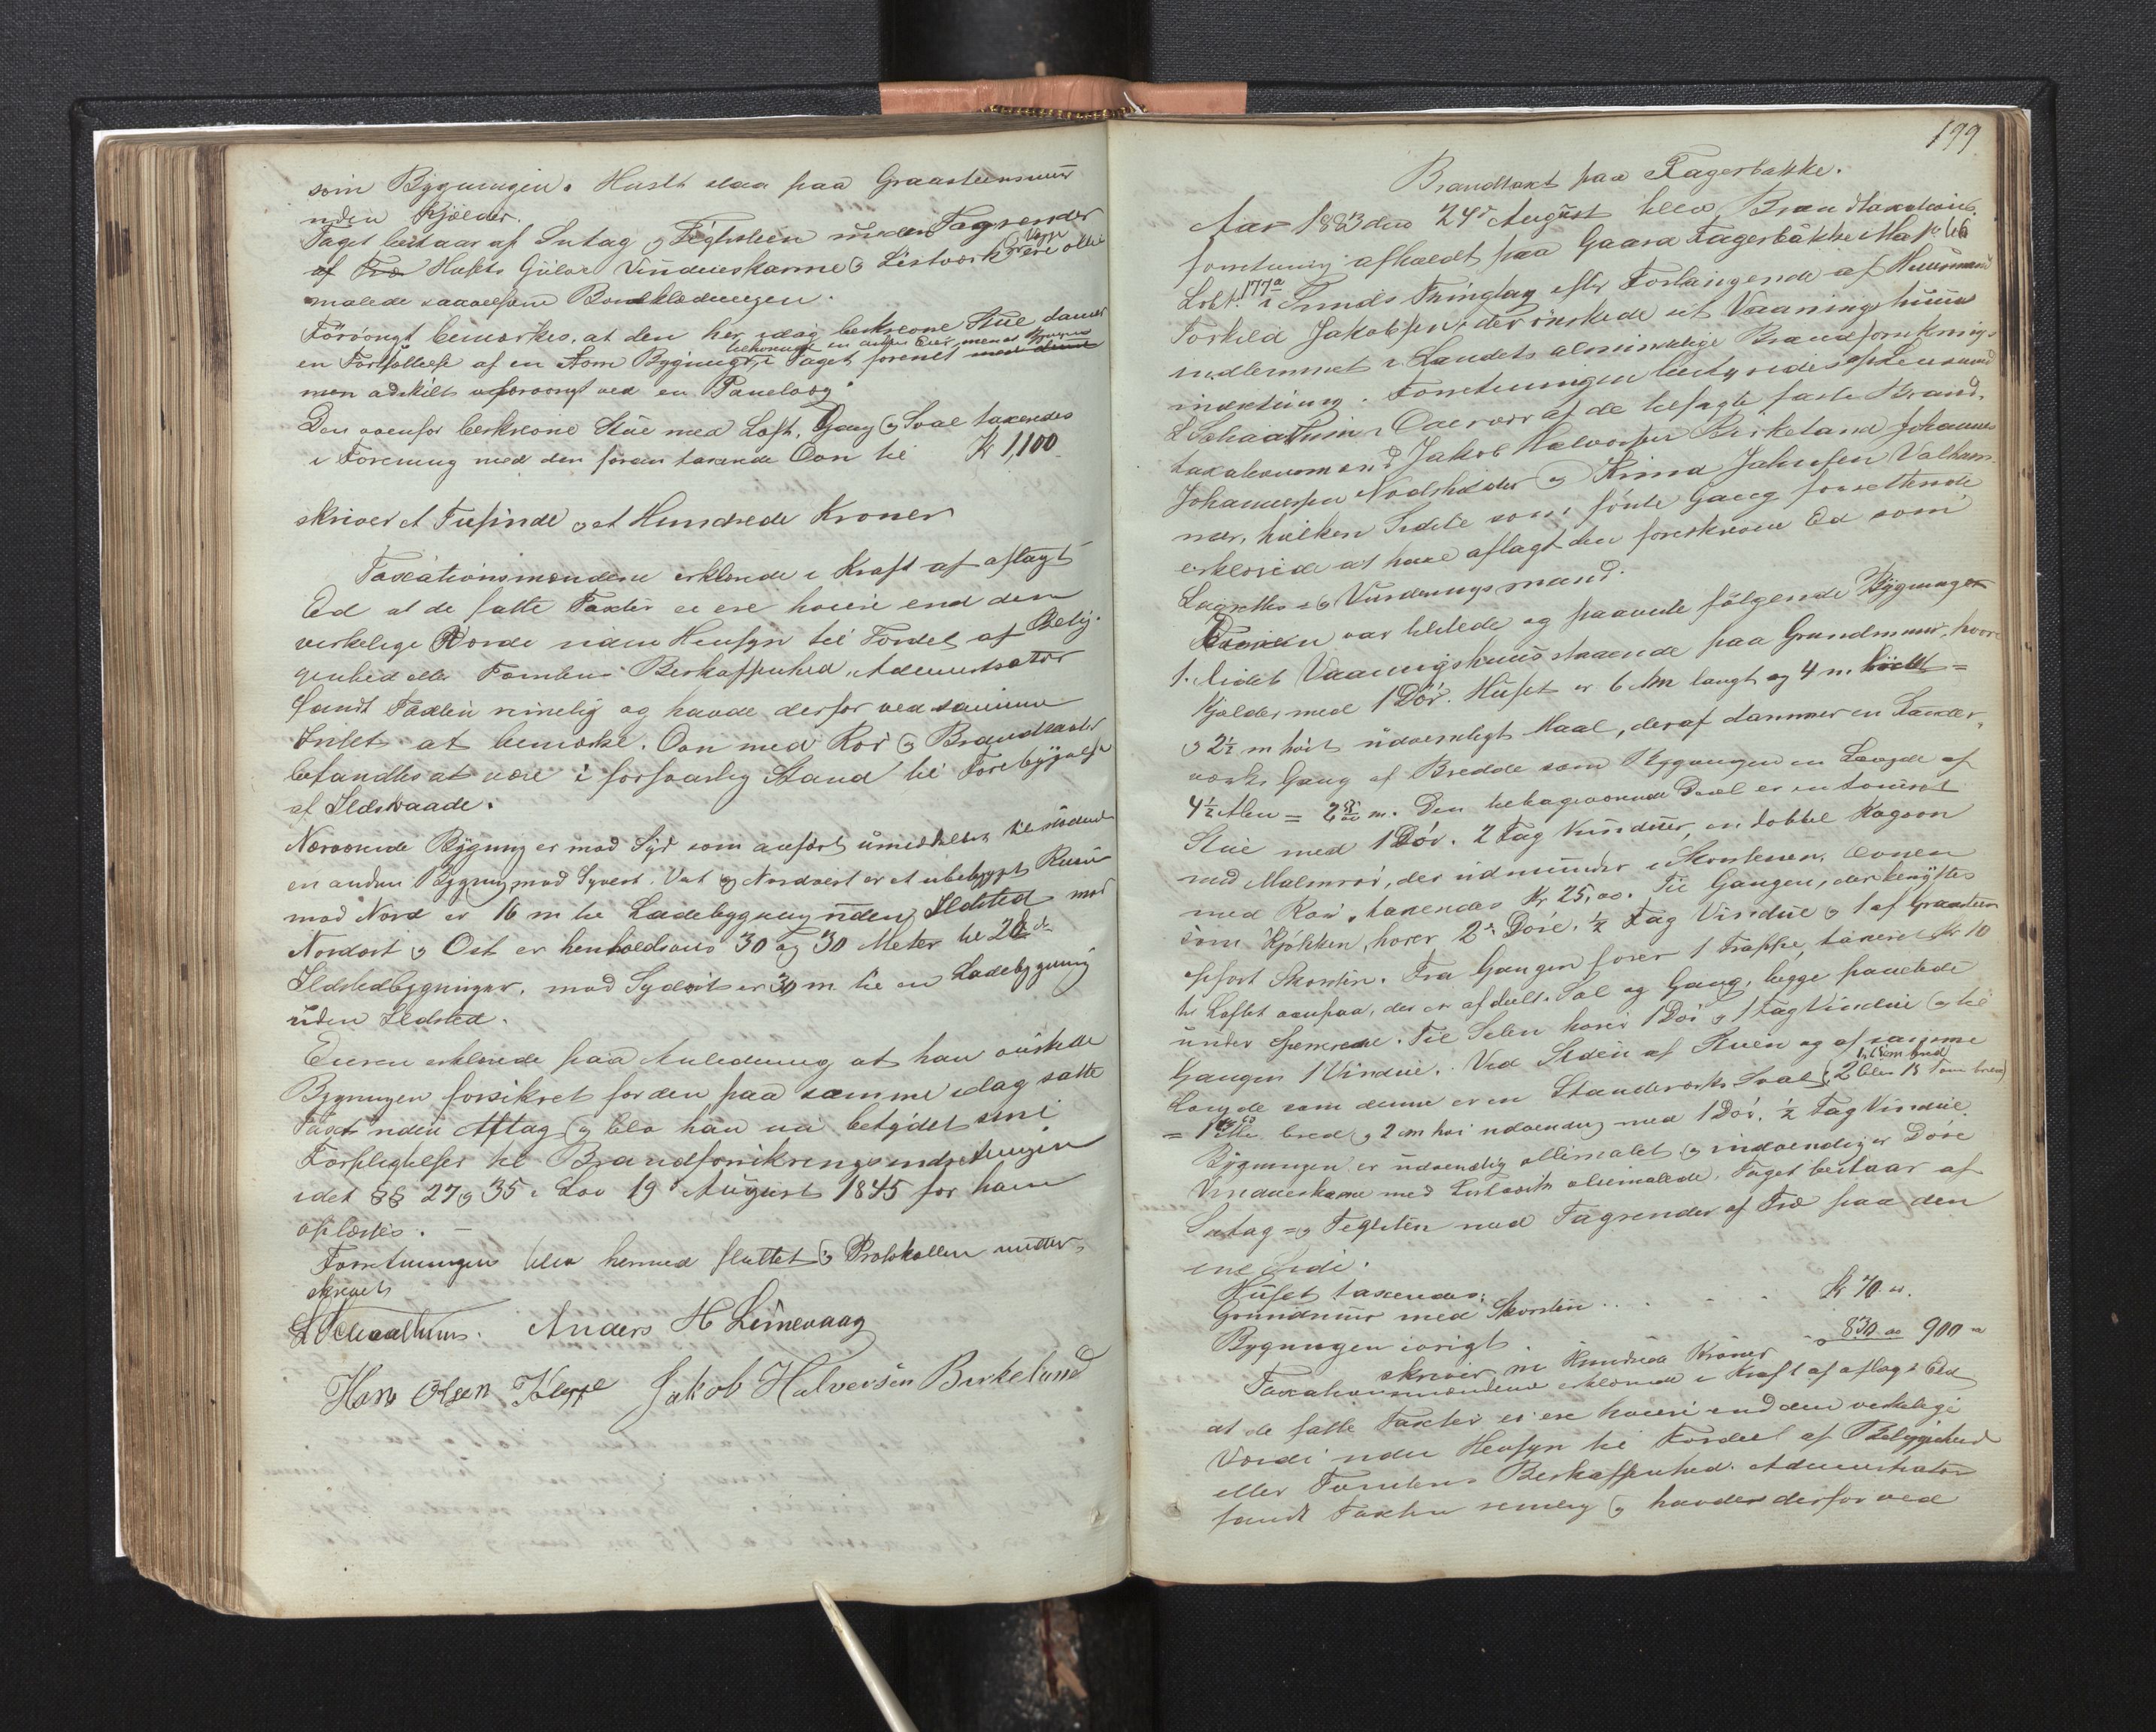 som Bygningen. Huset staa paa Graasteensmuur
uden Kjælder.
Taget bestaar af Sutag og Teglsteen uden Tagrender
af Træ Husets Gulve Vindueskarme og Listværk Vægge ere olie
malede saavelsom Bordklædningen.
Forøvrigt bemærkes, at den her idag beskrevne Stue danner
en Fortsættelse af en Bygning tilhørende en anden Eier, i Taget forenet
men adskilt forøvrigt ved en Panelvæg
Den ovenfor beskrevne Stue med Loft, Gang og Sval taxeredes
i Forening med den foran taxerede Ovn til Kr 1,100
skriver et Tusinde og et Hundrede Kroner
Taxationsmændene erklærede i Kraft af aflagt
Ed at de satte Taxter ei ere høiere end den
virkelige Værdi uden Hensyn til Fordel af Belig-
genhed eller Tomtens Beskaffenhed. Administrator
fandt Taxten rimelig og havde derfor ved samme
Intet at bemærke. Ovn med Rør og Brandredskaber
befandtes at være i forsvarlig Stand til Forebyggelse
af Ildsvaade.
Nærværende Bygning er mod Syd som anført umiddelbar tilstødende
en anden Bygning mod Sydvest. Vest og Nordvest er et ubebygget Rum
mod Nord er 16 m til Ladebygning uden Ildsted mod
Nordost og Ost er henholdsvis 30 og 30 Meter til 2de
Ildstedbygninger. mod Sydost er 30 m til en Ladebygning
uden Ildsted.
Eieren erklærede paa Anledning at han ønskede
Bygningen forsikret for den paa samme idag satte
Taxt uden Aftag og blev han nu betydet sine
Forpligtelser til Brandforsikringsindretningen
idet §§ 27 og 35 i Lov 19de August 1845 for ham
oplæstes. —
Forretningen blev hermed sluttet og Protokollen under-
skrevet
L Schaathun. Anders H Leinevaag
Hans Olsen Kleppe Jakob Halvorsen Birkeland
199
Brandtaxt paa Fagerbakke.
Aar 1883 den 24de August blev Brandtaxations
forretning afholdt paa Gaard Fagerbakke Ma No 66
Lobt 177a i Sunds Thinglag efter Forlangende af Huusmand
Torkild Jakobsen, der ønskede sit Vaaningshuus
indlemmet i Landets almindelige Brandforsikrings
indretning. Forretningen bestyredes af Lensmand
L Schaathun i Overvær af de tilsagte faste Brand-
taxationsmænd Jakob Halvorsen Birkeland Johannes
Johannessen Nodskider og Jahnsen Valham-
mer, hvilken Sidste som første Gang forrettende
erklærede at have aflagt den foreskrevne Ed som
Laugrettes- og Vurderingsmand.
Eieren var tilstede og paaviste følgende Bygninger
1. Lidet Vaaningshuus staaende paa Grundmuur, hvori
Kjælder med 1 Dør. Huset er 6 m langt og 4 m bredt
og 2½ m høit udvendigt Maal, deraf danner en Stander-
værks Gang af Bredde som Bygningen en Længde af
4½ Alen = 2 m. Den tilbageværende Deel er en tømret
Stue med 1 Dør. 2 Fag Vinduer, en dobbel Kagovn
med Malmrør, der udmunder i Skorstenen. Ovnen
med Rør, taxeredes Kr 25,00. Til Gangen, der benyttes
som Kjøkken, hører 2de Døre. ½ Fag Vindue og 1 af Graasteen
opført Skorsten. Fra Gangen fører 1 Trappe, taxeret Kr 10
til Loftet ovenpaa, der er afdeelt i Sal og Gang, begge panelede
under Spærrene. Til Salen hører 1 Dør og 1 Fag Vindue og til
Gangen 1 Vindue. Ved Siden af Stuen og af samme
Længde som denne er en Standerværks Sval,
bred og 2 m høi udvendig med 1 Dør, ½ Fag Vindue.
Bygningen er udvendig oliemalet og indvendig er Døre
Vindueskarme med Listværk oliemalede. Taget bestaar af
Sutag og Teglsten med Tagrender af Træ paa den
ene Side.
Huset taxeredes:
Grundmuur med Skorsten . . - - Kr 70 00.
Bygningen iøvrigt . 830 00 900 00
skriver ni Hundrede Kroner
Taxationsmændene erklærede i Kraft af aflagt Ed
at de satte Taxter ei ere høiere end den virkelige
Værdi uden Hensyn til Fordeel af Beliggenhed
eller Tomtens Beskaffenhed. Administrator
fandt Taxten rimelig og havde derfor ved